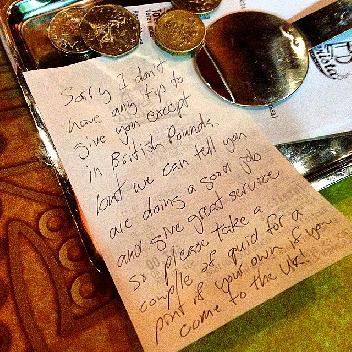 Sorry I don't
have any tips to
give you except
in British Pounds.
but we can tell you
are doing a good job
and give great service
so please take a
couple of quid for a
pint of your own if you
come to the UK!